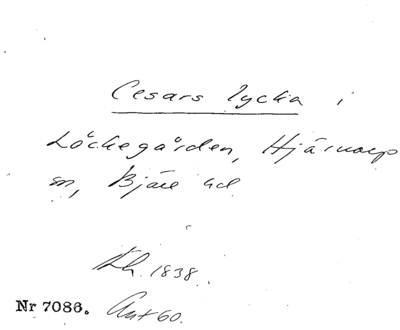 Cesars lycka i
Löckegården, Hjärnarp
sn, Bjäre hd
Lh. 1838.
Nr 7086. Avt 60.